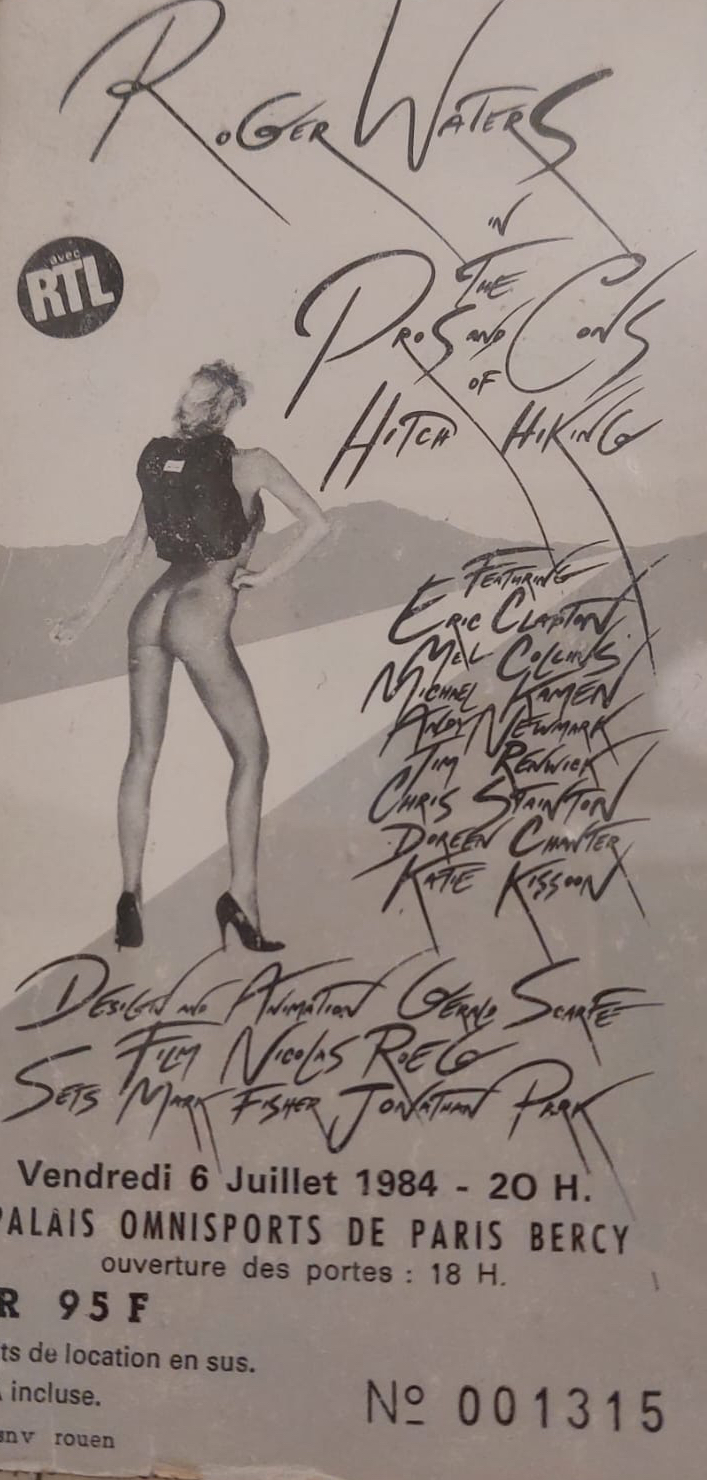 Roger Waters
in
avec
RTL
The
Pros and Cons
of
Hitch Hiking
Featuring
Eric Clapton
Mel Collins
Michael Kamen
Andy Newmark
Tim Renwick
Chris Stainton
Doreen Chanter
Katie Kissoon
Design and Animation Gerald Scarfe
Film Nicolas Roeg
Sets Mark Fisher Jonathan Park
Vendredi 6 Juillet 1984 - 20 H.
PALAIS OMNISPORTS DE PARIS BERCY
ouverture des portes : 18 H.
R 95 F
ts de location en sus.
incluse.
snv rouen
Nº 001315